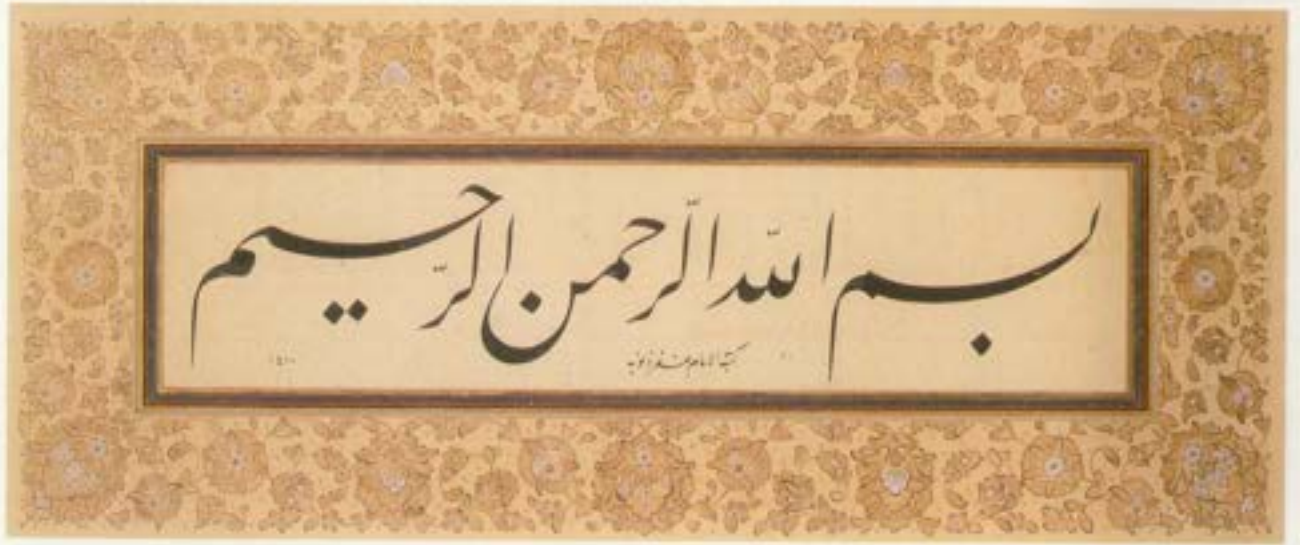 بسم الله الرحمن الرحيم
كتبه
١٤١٠